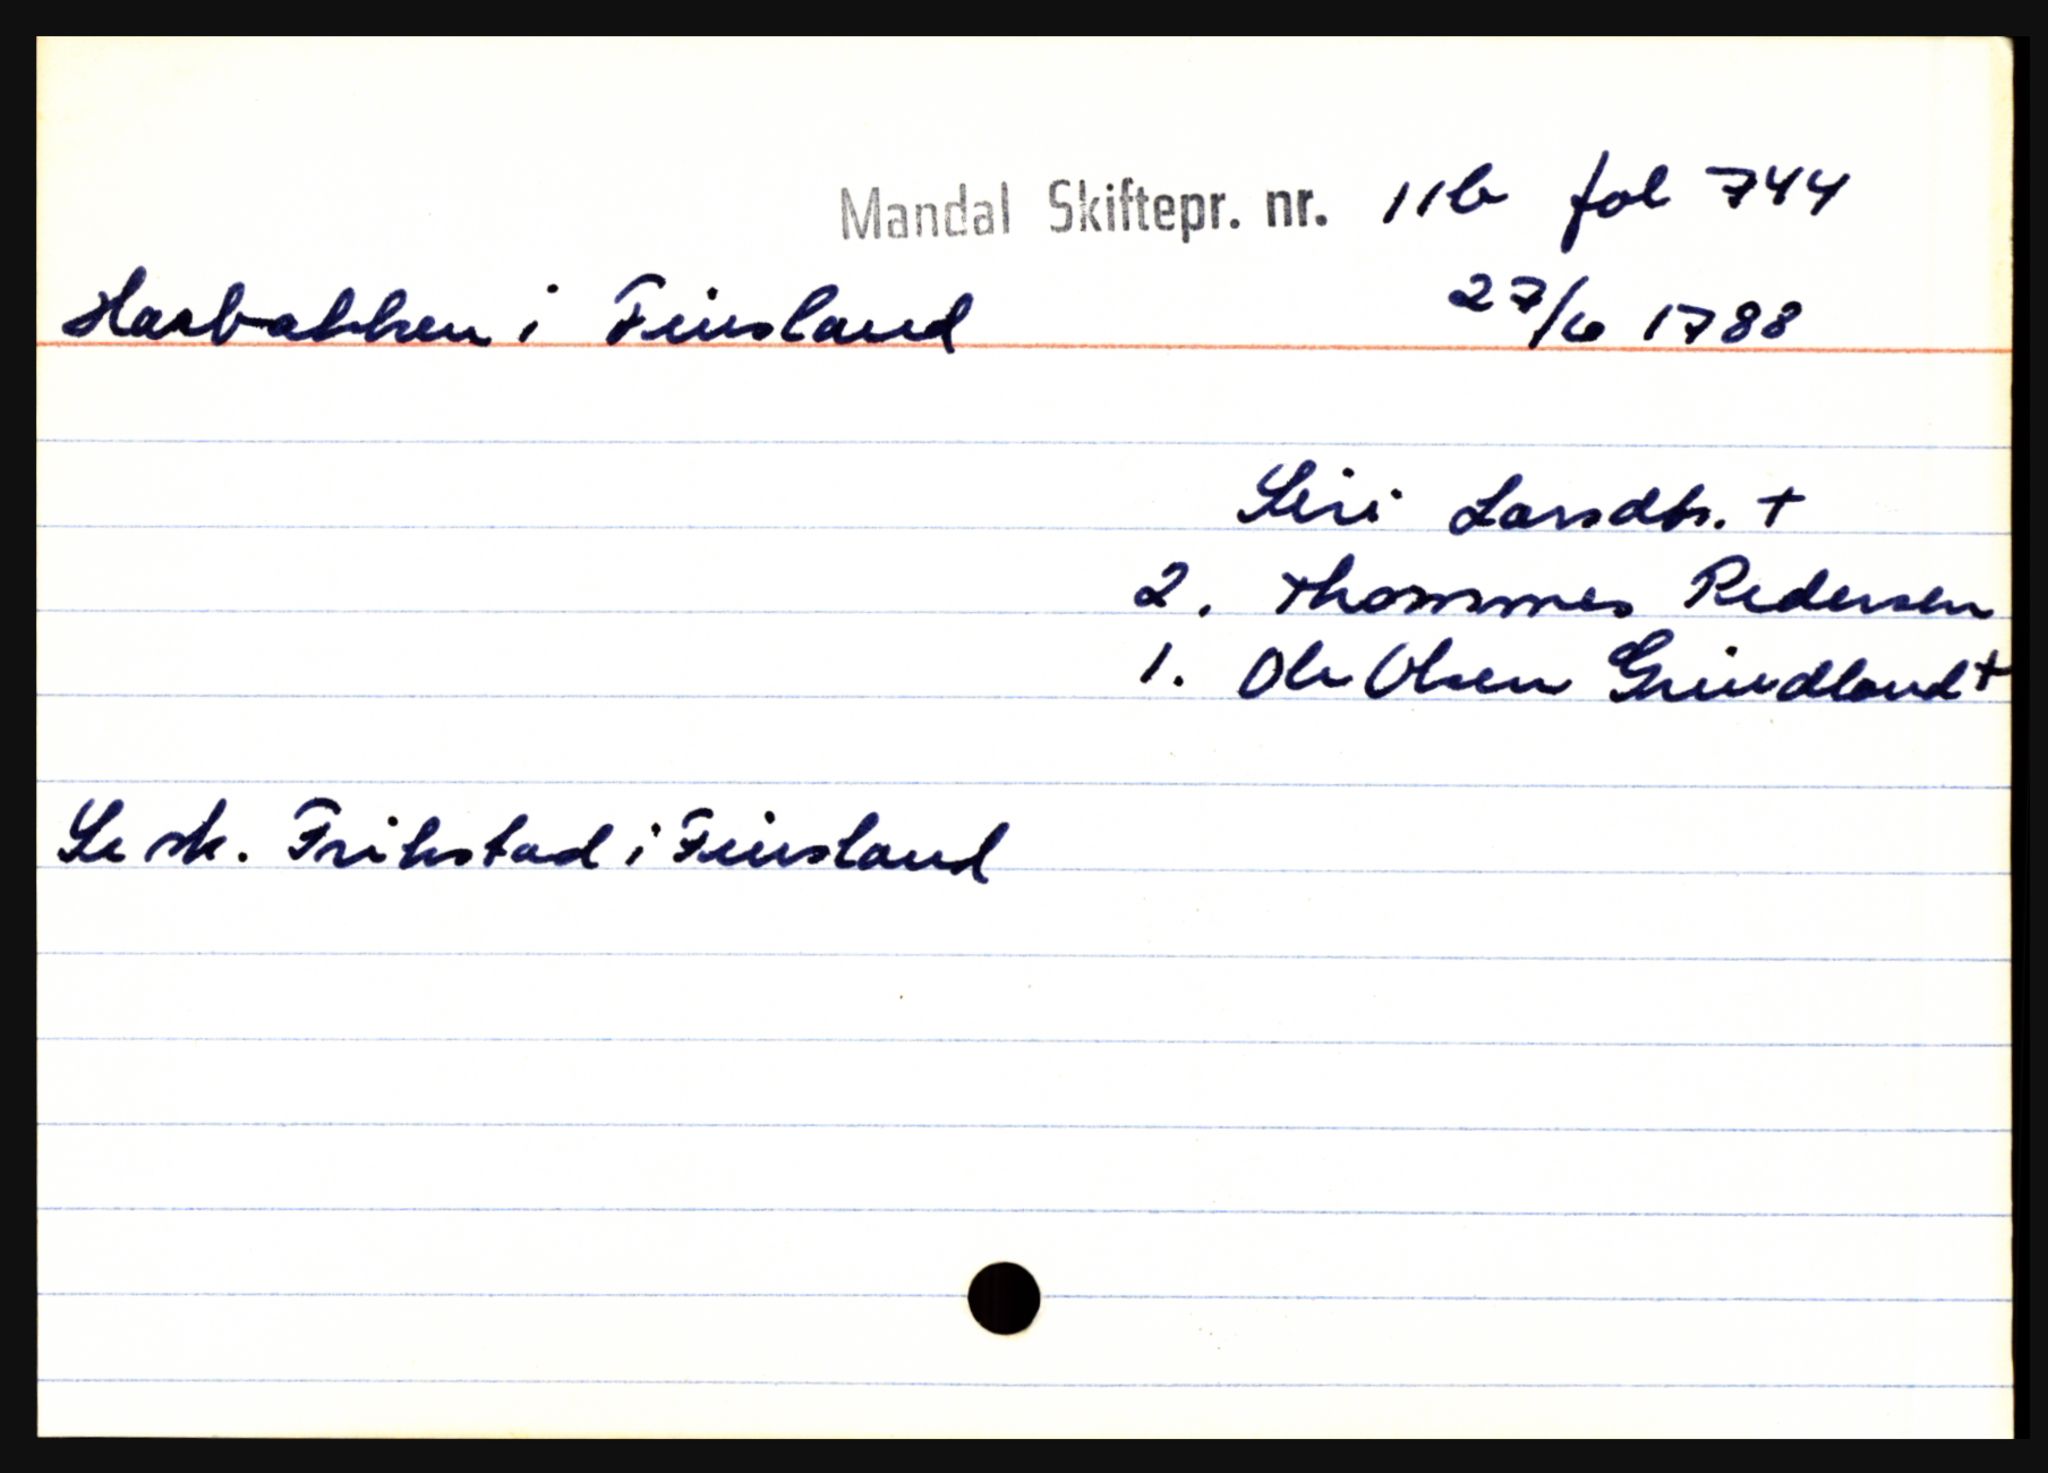 Mandal Skiftepr. nr. 11b fol 744
Hasbakken i Finsland 27/6 1788
Siri Larsdtr. +
2. Thommes Pedersen
1. Ole Olsen Grindland +
Se sk. Frikstad i Finsland